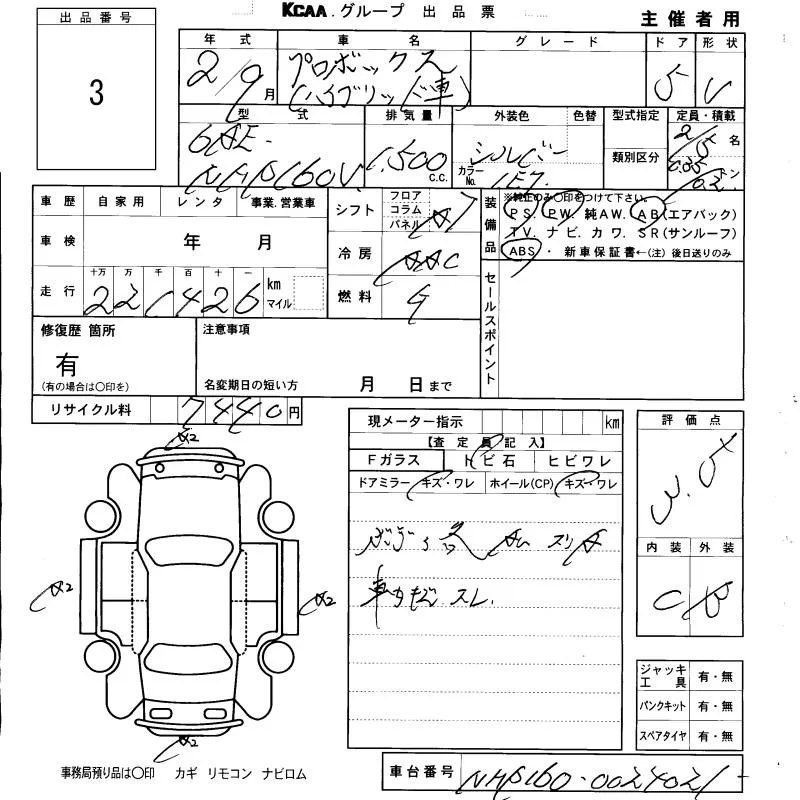 KCAA.グループ 出品票
主催者用
出品番号
3
年式 車名 グレード ドア 形状
2/9月 プロボックス 5 V
(ハイブリッド車)
型式 排気量 外装色 色替 型式指定 定員・積載
6AE- シルバー 2/5名
NHP160V 1,500C.C. カラーNo. 1E7 類別区分 0.35/0.2トン
車歴 自家用 レンタ 事業.営業車
車検 年 月
走行 十万 万 千 百 十 一
221426 km マイル
シフト フロア コラム パネル AT
冷房 AAC
燃料 G
装備品
※純正のみ〇印をつけて下さい。
PS. PW. 純AW. AB(エアバック)
TV. ナビ. カワ. SR(サンルーフ)
ABS・ 新車保証書←(注) 後日送りのみ
セールスポイント
修復歴 箇所
有
(有の場合は〇印を)
注意事項
名変期日の短い方 月 日まで
リサイクル料 7440円
現メーター指示 km
【査定員記入】
Fガラス トビ石 ヒビワレ
ドアミラー キズ・ワレ ホイール(CP) キズ・ワレ
車内 スレ.
評価点
3.5
内装 外装
C B
ジャッキ工具 有・無
パンクキット 有・無
スペアタイヤ 有・無
A2
A2
A2
A2
事務局預り品は〇印 カギ リモコン ナビロム
車台番号 NHP160-0024021